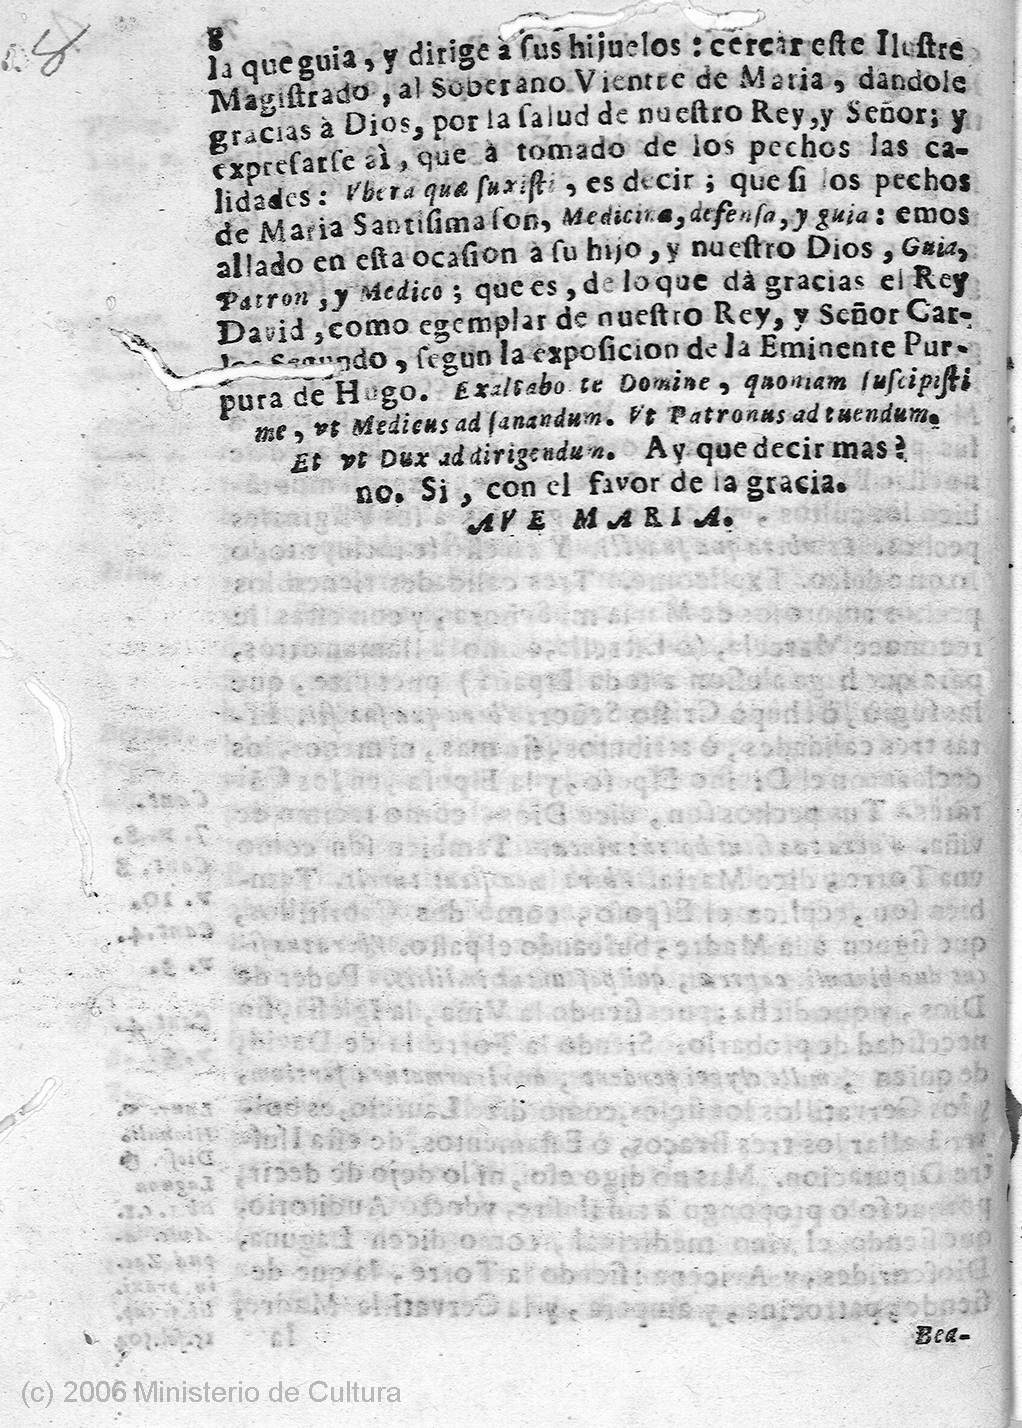 8
la que guia, y dirige à ſus hijuelos: cercar eſte Iluſtre
Magiſtrado, al Soberano Vientre de Maria, dandole
gracias à Dios, por la ſalud de nueſtro Rey, y Señor; y
expreſarſe aì, que à tomado de los pechos las ca-
lidades: Vbera quæ ſuxiſti, es decir; que ſi los pechos
de Maria Santiſima ſon, Medicina, defenſa, y guia: emos
allado en eſta ocaſion à ſu hijo, y nueſtro Dios, Guia,
Patron, y Medico; que es, de lo que dà gracias el Rey
David, como egemplar de nueſtro Rey, y Señor Car-
los Segundo, ſegun la expoſicion de la Eminente Pur-
pura de Hugo. Exaltabo te Domine, quoniam ſuſcipiſti
me, vt Medicus ad ſanandum. Vt Patronus ad tuendum.
Et vt Dux ad dirigendum. Ay que decir mas?
no. Si, con el favor de la gracia.
AVE MARIA.
Bea-
(c) 2006 Ministerio de Cultura